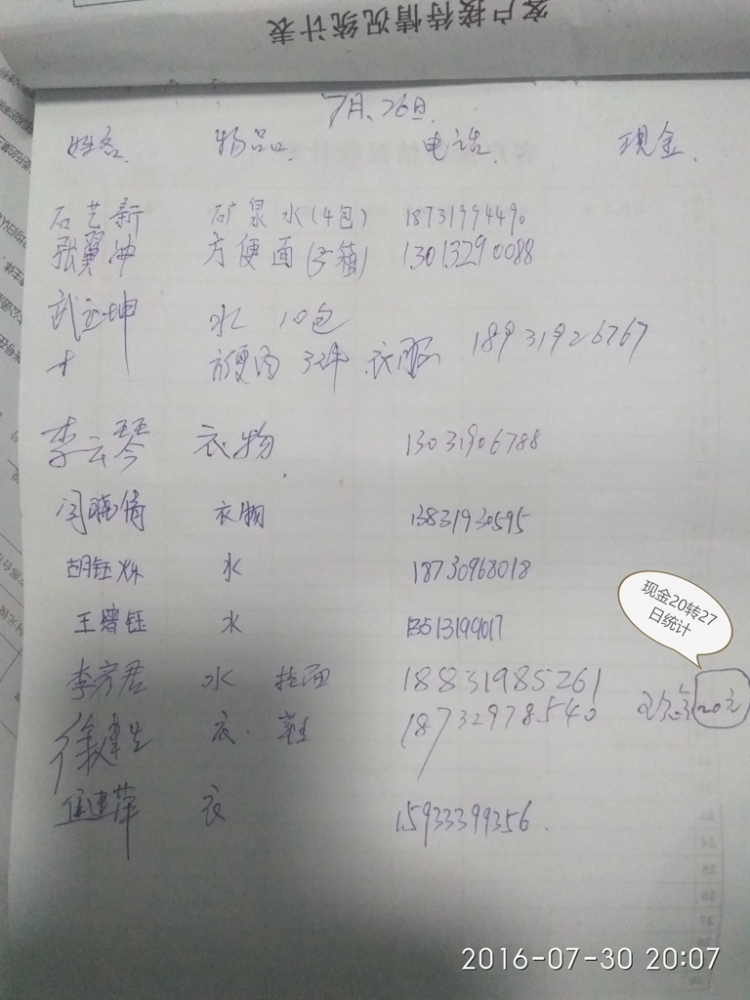 客户接待情况统计表
7月26日
姓名 物品 电话 现金
石艺新 矿泉水(4包) 18731994490
张翼冲 方便面(5箱) 13013290088
武 坤 水 10包
+ 方便面 3件 衣服 18931926767
李云琴 衣物 13031906788
闫晓倩 衣物 13831930595
胡钰烁 水 18730968018
现金20转27
日统计
王曾钰 水 13513199017
李彦君 水 挂面 18831985261
徐 生 衣. 鞋 18732978540 20元
建萍 衣 15933399356.
2016-07-30 20:07